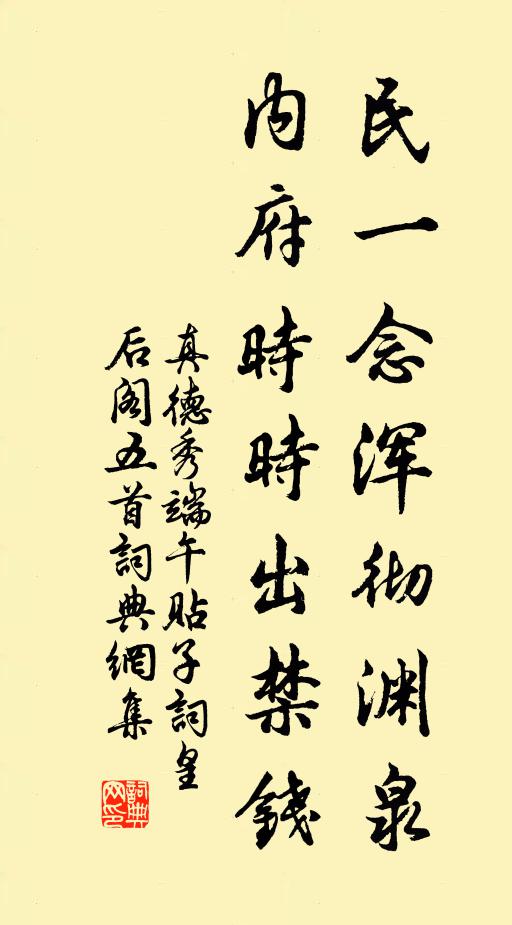 民一念浑彻渊泉
内府時時出禁錢
真德秀端午貼子詞皇
后阁五首詞典網集
詞典网印